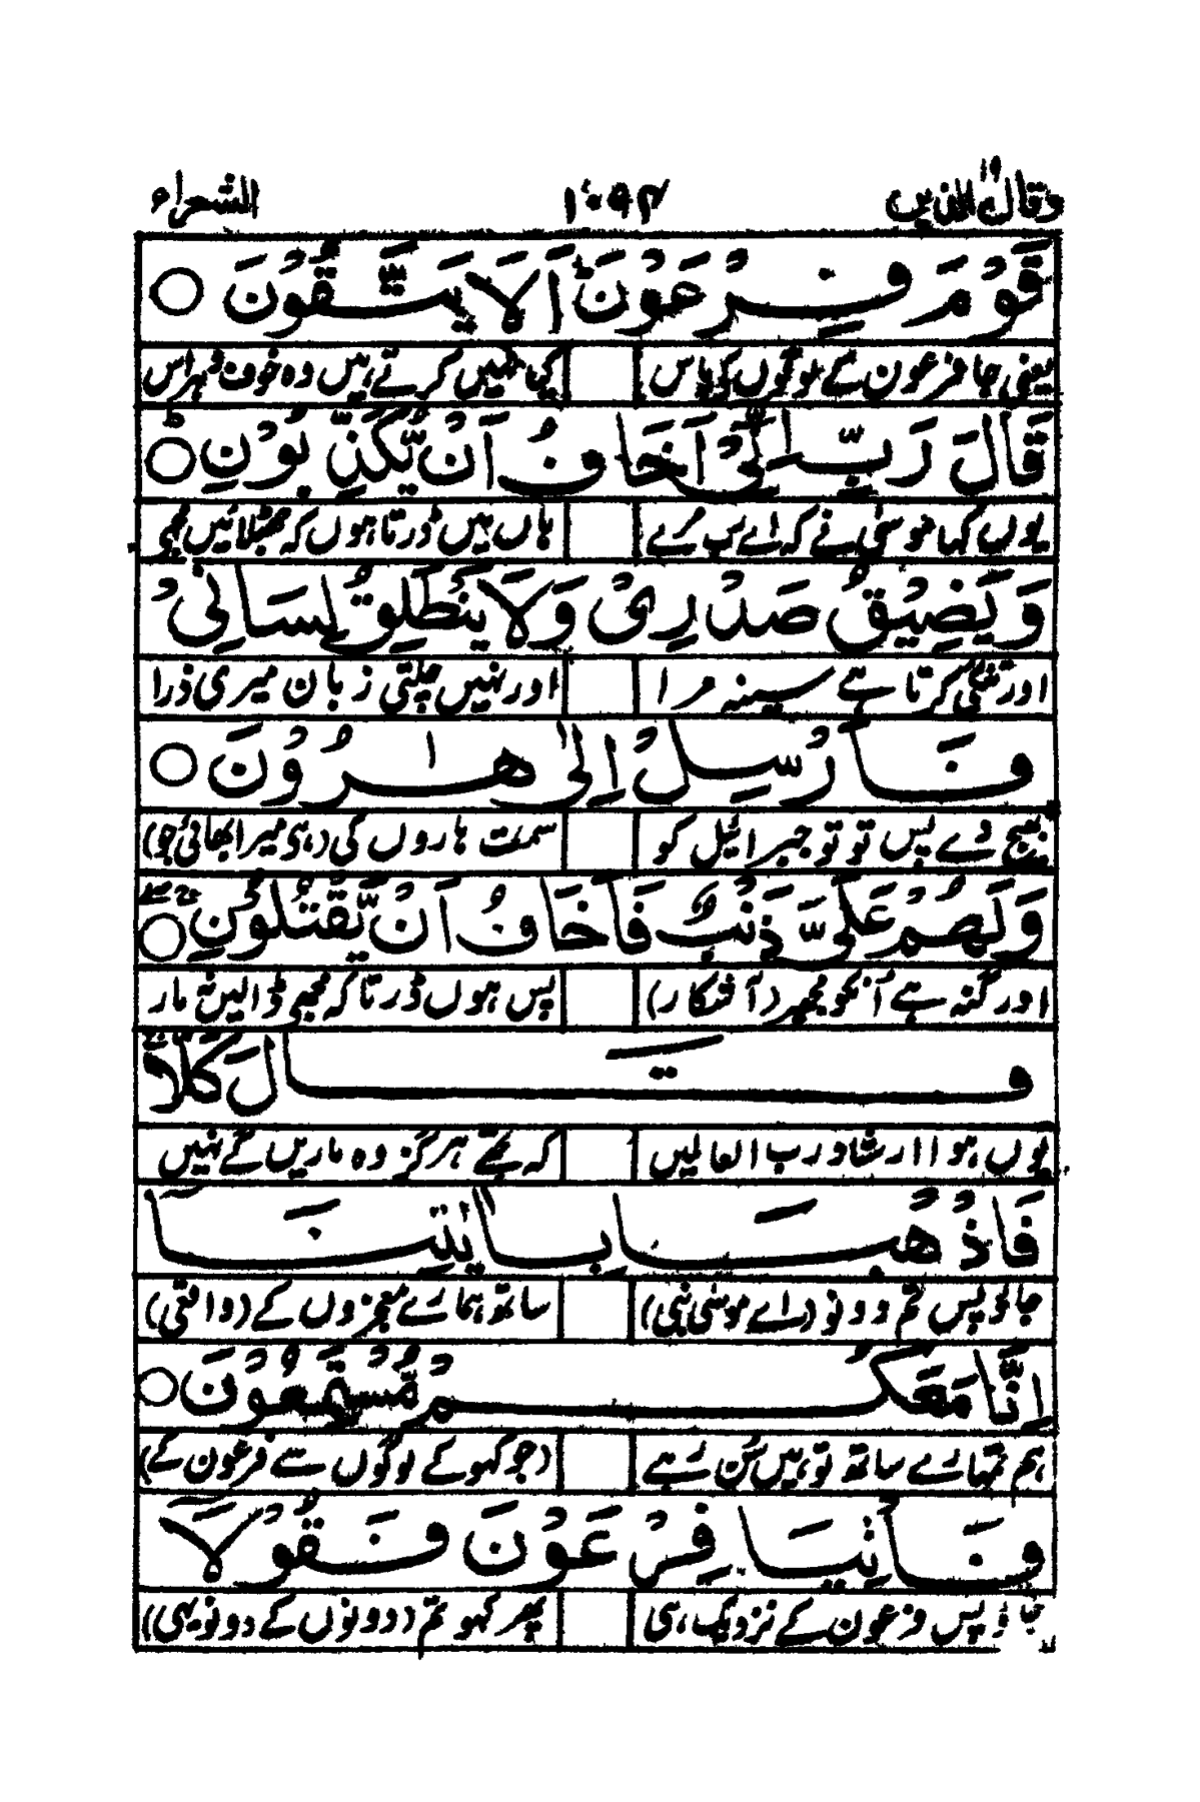 وقال الذین ۱۹ ۱۰۹۴ الشعراء
قَوْمَ فِرْعَوْنَ ؕ اَلَا یَتَّقُوْنَ ○
یعنی جا فرعون کے لوگوں کے پاس کیا نہیں کرتے ہیں وہ خوف و ہراس
قَالَ رَبِّ اِنِّیْۤ اَخَافُ اَنْ یُّكَذِّبُوْنِ ؕ ○
یوں کہا موسیٰ نے کہ اے رب مرے ہاں میں ڈرتا ہوں کہ جھٹلائیں مجھے
وَ یَضِیْقُ صَدْرِیْ وَلَا یَنْطَلِقُ لِسَانِیْ
اور تنگی کرتا ہے سینہ مرا اور نہیں چلتی زبان میری ذرا
فَاَرْسِلْ اِلٰی هٰرُوْنَ ○
بھیج دے پس تو تو جبرائیل کو سمت ہاروں کی (ہے میرا بھائی جو)
وَلَهُمْ عَلَیَّ ذَنْۢبٌ فَاَخَافُ اَنْ یَّقْتُلُوْنِ ○
اور گنہ ہے اُنکو مجھپر (آشکار) پس ہوں ڈرتا کہ مجھے ڈالیں نہ مار
قَالَ كَلَّا
یوں ہوا ارشاد رب العالمیں کہ تجھے ہرگز وہ ماریں گے نہیں
فَاذْهَبَا بِاٰیٰتِنَاۤ
جاؤ پس تم دونو (اے موسیٰ نبی) ساتھ ہمارے معجزوں کے (واقعی)
اِنَّا مَعَكُمْ مُّسْتَمِعُوْنَ ○
ہم تمہارے ساتھ تو ہیں سُن رہے (جو کہو گے لوگوں سے فرعون کے)
فَاْتِیَا فِرْعَوْنَ فَقُوْلَاۤ
جاؤ پس فرعون کے نزدیک ہی پھر کہو تم (دونوں کے دونو یہی)